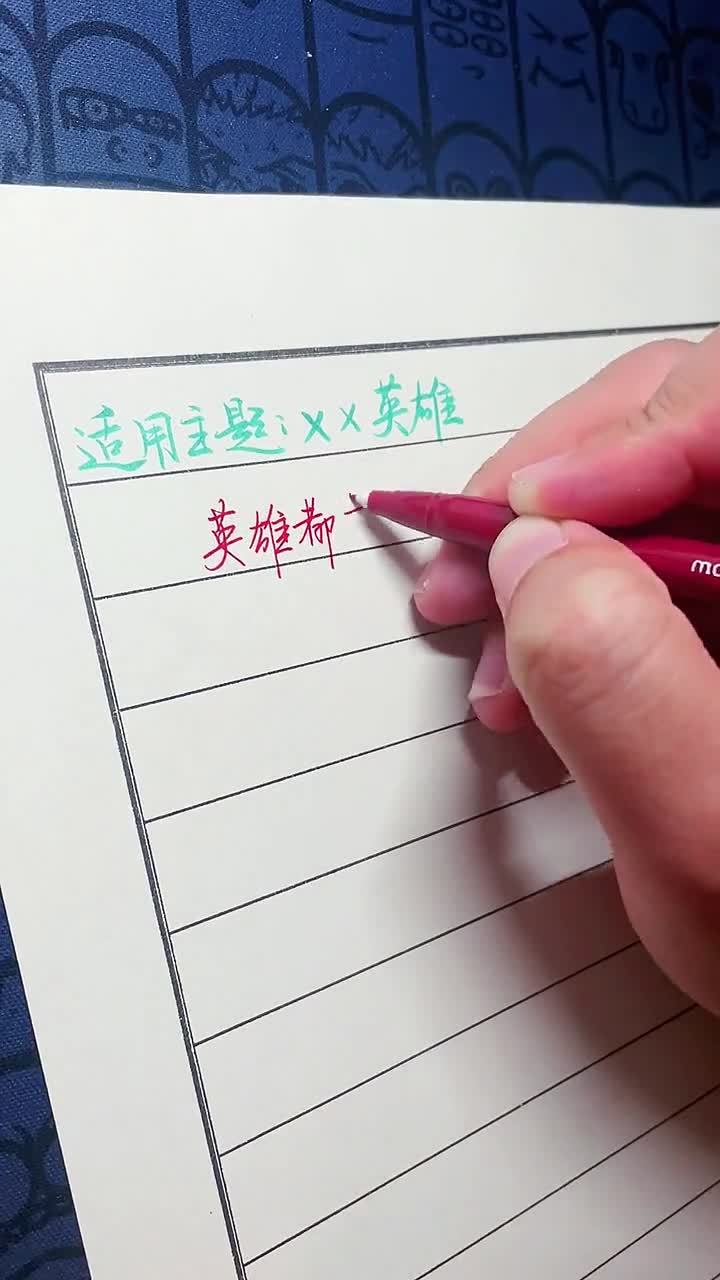 适用主题：××英雄
英雄都